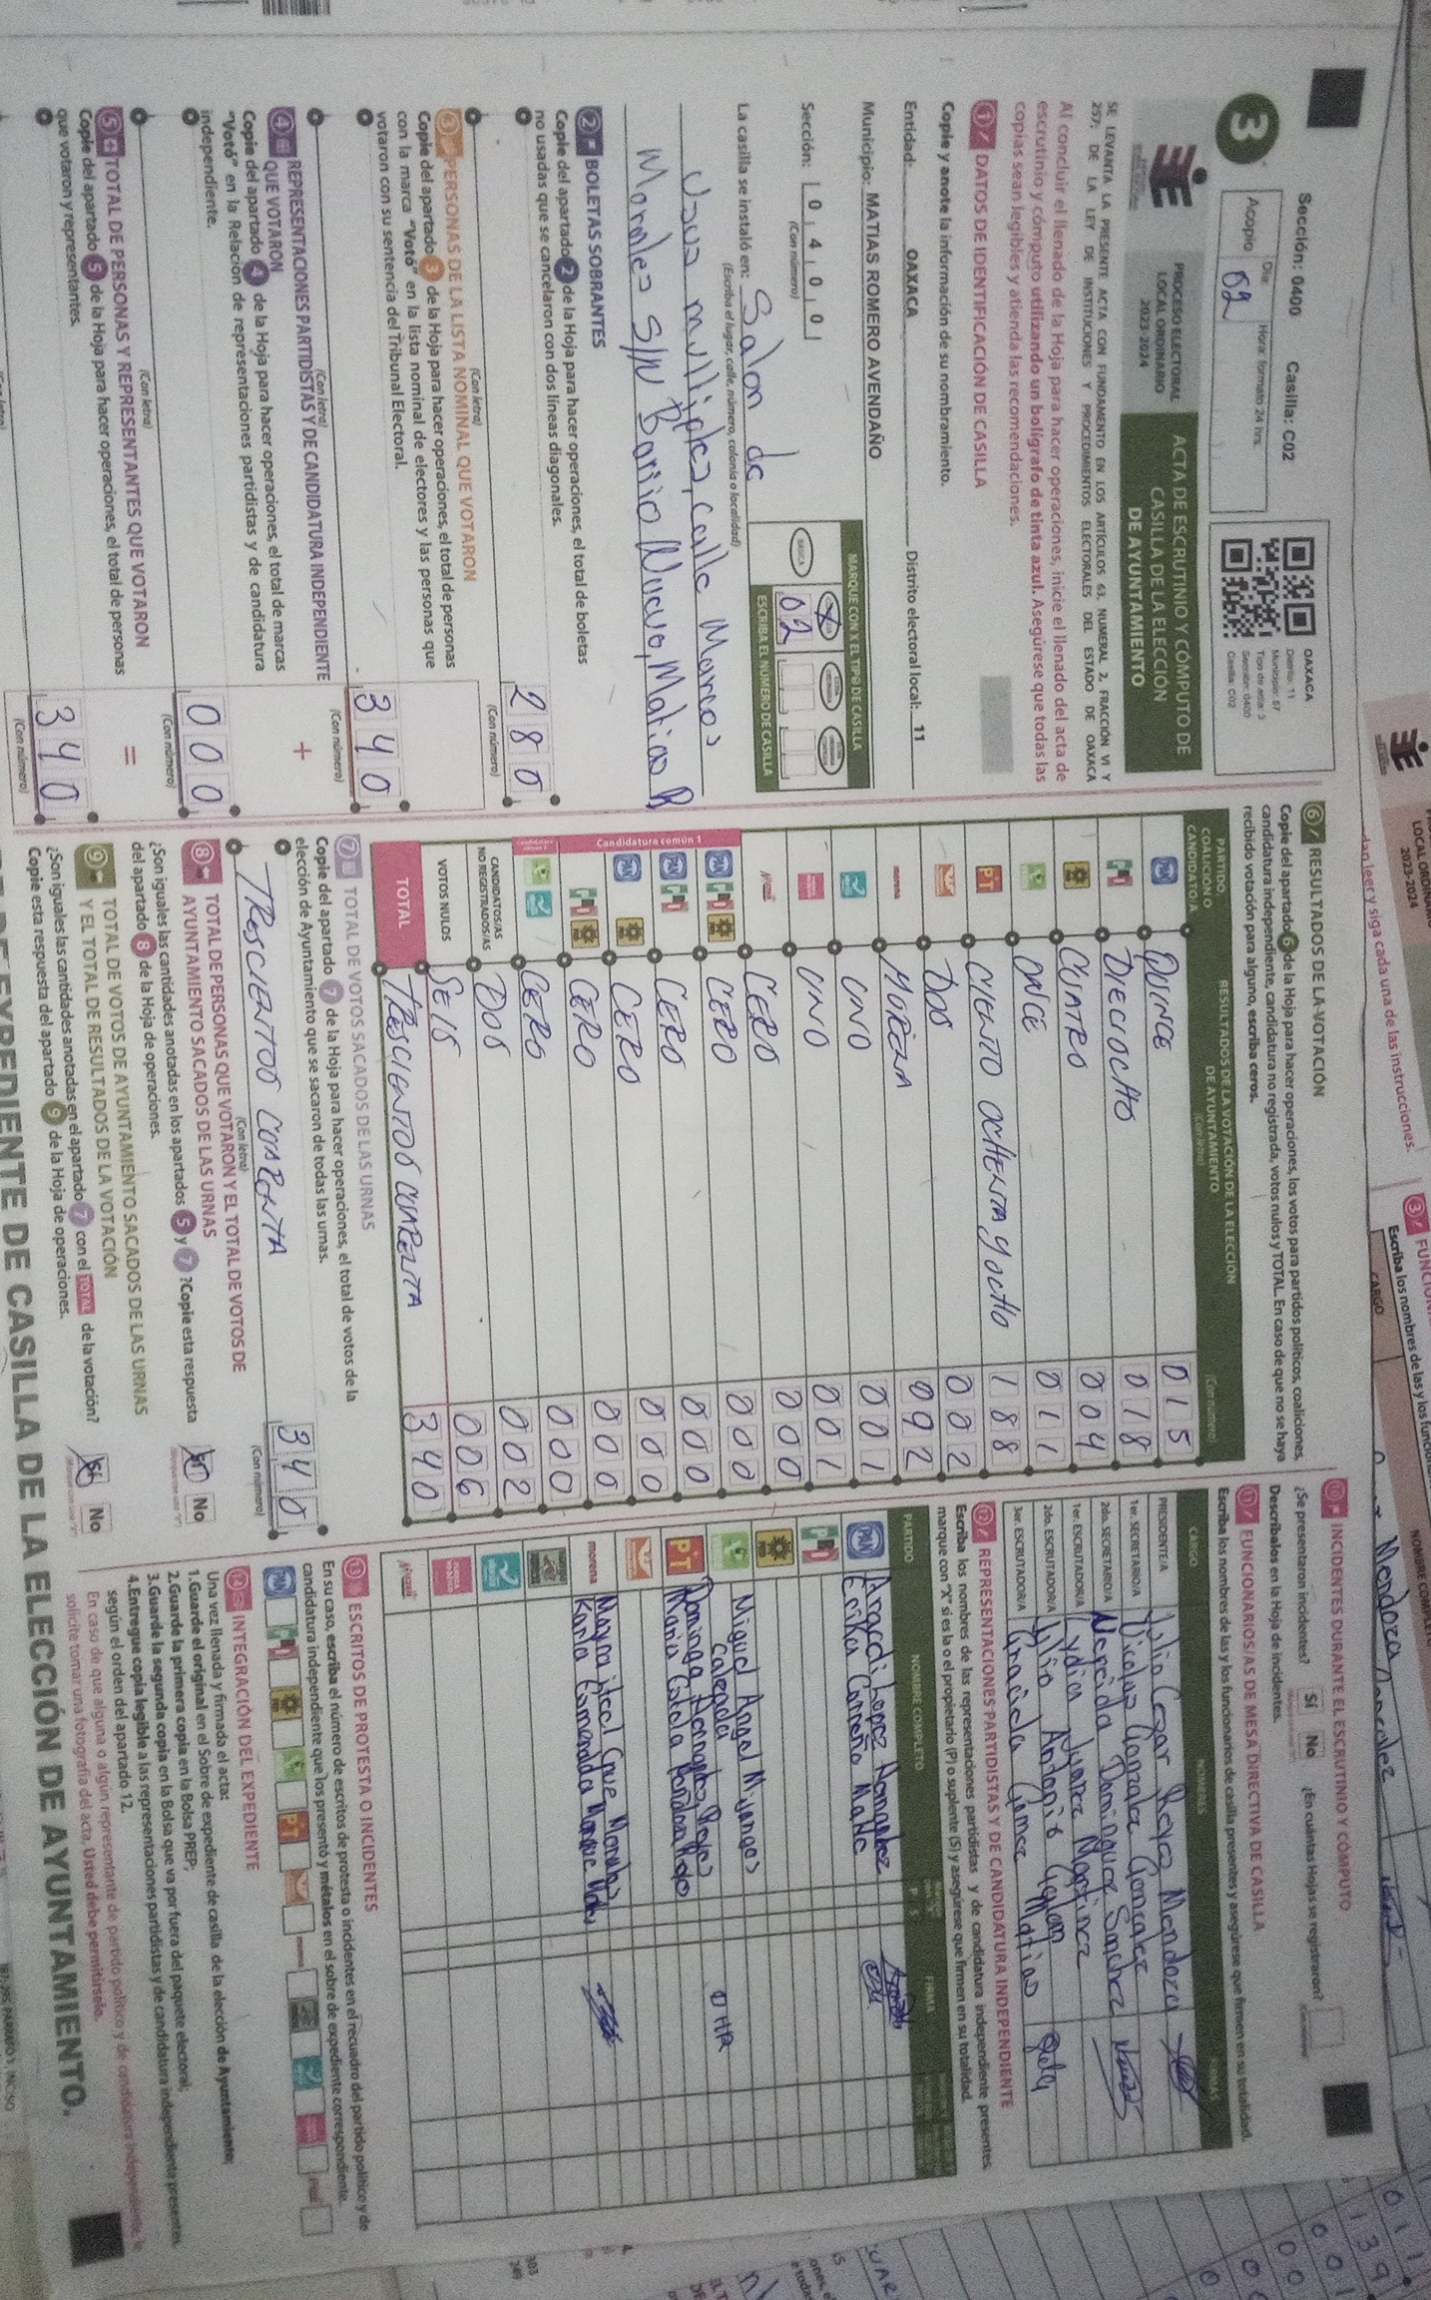 Sección: 0400 Casilla: C02
3
Acopio
Día:
Hora: formato 24 hrs.
02
OAXACA
Distrito: 11
Municipio: 67
Tipo de acta: 3
Sección: 0400
Casilla: C02
PROCESO ELECTORAL
LOCAL ORDINARIO
2023-2024
ACTA DE ESCRUTINIO Y CÓMPUTO DE
CASILLA DE LA ELECCIÓN
DE AYUNTAMIENTO
SE LEVANTA LA PRESENTE ACTA CON FUNDAMENTO EN LOS ARTÍCULOS 63, NUMERAL 2, FRACCIÓN VI Y
257; DE LA LEY DE INSTITUCIONES Y PROCEDIMIENTOS ELECTORALES DEL ESTADO DE OAXACA
Al concluir el llenado de la Hoja para hacer operaciones, inicie el llenado del acta de
escrutinio y cómputo utilizando un bolígrafo de tinta azul. Asegúrese que todas las
copias sean legibles y atienda las recomendaciones.
1 DATOS DE IDENTIFICACIÓN DE CASILLA
Copie y anote la información de su nombramiento.
Entidad: OAXACA Distrito electoral local: 11
Municipio: MATIAS ROMERO AVENDAÑO
Sección: 0 4 0 0
(Con número)
MARQUE CON X EL TIPO DE CASILLA
BÁSICA
ESCRIBA EL NÚMERO DE CASILLA
02
La casilla se instaló en: Salon de
(Escriba el lugar, calle, número, colonia o localidad)
usus multiples, calle Marcos
Morales S/N Barrio Nuevo, Matias R
2 BOLETAS SOBRANTES
Copie del apartado 2 de la Hoja para hacer operaciones, el total de boletas
no usadas que se cancelaron con dos líneas diagonales.
280
(Con letra)
(Con número)
3 PERSONAS DE LA LISTA NOMINAL QUE VOTARON
Copie del apartado 3 de la Hoja para hacer operaciones, el total de personas
con la marca "Votó" en la lista nominal de electores y las personas que
votaron con su sentencia del Tribunal Electoral.
340
(Con letra)
(Con número)
4 REPRESENTACIONES PARTIDISTAS Y DE CANDIDATURA INDEPENDIENTE
QUE VOTARON
+
Copie del apartado 4 de la Hoja para hacer operaciones, el total de marcas
"Votó" en la Relación de representaciones partidistas y de candidatura
independiente.
000
(Con letra)
(Con número)
5 TOTAL DE PERSONAS Y REPRESENTANTES QUE VOTARON
=
Copie del apartado 5 de la Hoja para hacer operaciones, el total de personas
que votaron y representantes.
340
(Con número)
6 RESULTADOS DE LA VOTACIÓN
Copie del apartado 6 de la Hoja para hacer operaciones, los votos para partidos políticos, coaliciones,
candidatura independiente, candidatura no registrada, votos nulos y TOTAL. En caso de que no se haya
recibido votación para alguno, escriba ceros.
PARTIDO
COALICIÓN O
CANDIDATO/A
RESULTADOS DE LA VOTACIÓN DE LA ELECCIÓN
DE AYUNTAMIENTO
(Con letra)
(Con número)
PAN QUINCE 015
DIECIOCHO 018
CUATRO 004
ONCE 011
PT CIENTO OCHENTA Y OCHO 188
DOS 002
morena MORENA 092
UNO 001
UNO 001
CERO 000
Candidatura común 1
CERO 000
CERO 000
CERO 000
CERO 000
CERO 000
CANDIDATOS/AS
NO REGISTRADOS/AS DOS 002
VOTOS NULOS SEIS 006
TOTAL TRESCIENTOS CUARENTA 340
7 TOTAL DE VOTOS SACADOS DE LAS URNAS
Copie del apartado 7 de la Hoja para hacer operaciones, el total de votos de la
elección de Ayuntamiento que se sacaron de todas las urnas.
TRESCIENTOS CUARENTA 340
(Con letra)
(Con número)
8 TOTAL DE PERSONAS QUE VOTARON Y EL TOTAL DE VOTOS DE
AYUNTAMIENTO SACADOS DE LAS URNAS
¿Son iguales las cantidades anotadas en los apartados 5 y 7 ? Copie esta respuesta
del apartado 8 de la Hoja de operaciones.
Sí No
9 TOTAL DE VOTOS DE AYUNTAMIENTO SACADOS DE LAS URNAS
Y EL TOTAL DE RESULTADOS DE LA VOTACIÓN
¿Son iguales las cantidades anotadas en el apartado 7 con el TOTAL de la votación?
Copie esta respuesta del apartado 9 de la Hoja de operaciones.
Sí No
10 INCIDENTES DURANTE EL ESCRUTINIO Y CÓMPUTO
¿Se presentaron incidentes? Sí No ¿En cuántas Hojas se registraron?
Descríbalos en la Hoja de incidentes.
11 FUNCIONARIOS/AS DE MESA DIRECTIVA DE CASILLA
Escriba los nombres de las y los funcionarios de casilla presentes y asegúrese que firmen en su totalidad.
CARGO NOMBRES FIRMAS
PRESIDENTE/A Julio Cesar Reyes Mendoza
1er. SECRETARIO/A Nicolas Gonzalez Gonzalez
2do. SECRETARIO/A Nereida Dominguez Sanchez
1er. ESCRUTADOR/A Lydia Juarez Martinez
2do. ESCRUTADOR/A Julio Antonio
3er. ESCRUTADOR/A Graciela Gomez Matias
12 REPRESENTACIONES PARTIDISTAS Y DE CANDIDATURA INDEPENDIENTE
Escriba los nombres de las representaciones partidistas y de candidatura independiente presentes,
marque con "X" si es la o el propietario (P) o suplente (S) y asegúrese que firmen en su totalidad.
PARTIDO NOMBRE COMPLETO P S FIRMA
PAN Aracdi Lopez
Erika Carreño
Miguel Angel Mijangos
PT Dominga
Maria
morena Mayra
Karla
13 ESCRITOS DE PROTESTA O INCIDENTES
En su caso, escriba el número de escritos de protesta o incidentes en el recuadro del partido político y de
candidatura independiente que los presentó y métalos en el sobre de expediente correspondiente.
INTEGRACIÓN DEL EXPEDIENTE
Una vez llenada y firmada el acta:
1.Guarde el original en el Sobre de expediente de casilla de la elección de Ayuntamiento;
2.Guarde la primera copia en la Bolsa PREP;
3.Guarde la segunda copia en la Bolsa que va por fuera del paquete electoral;
4.Entregue copia legible a las representaciones partidistas y de candidatura independiente presentes,
según el orden del apartado 12.
En caso de que alguna o algún representante de partido político y de candidatura independiente, le
solicite tomar una fotografía del acta, Usted debe permitírselo.
EXPEDIENTE DE CASILLA DE LA ELECCIÓN DE AYUNTAMIENTO.